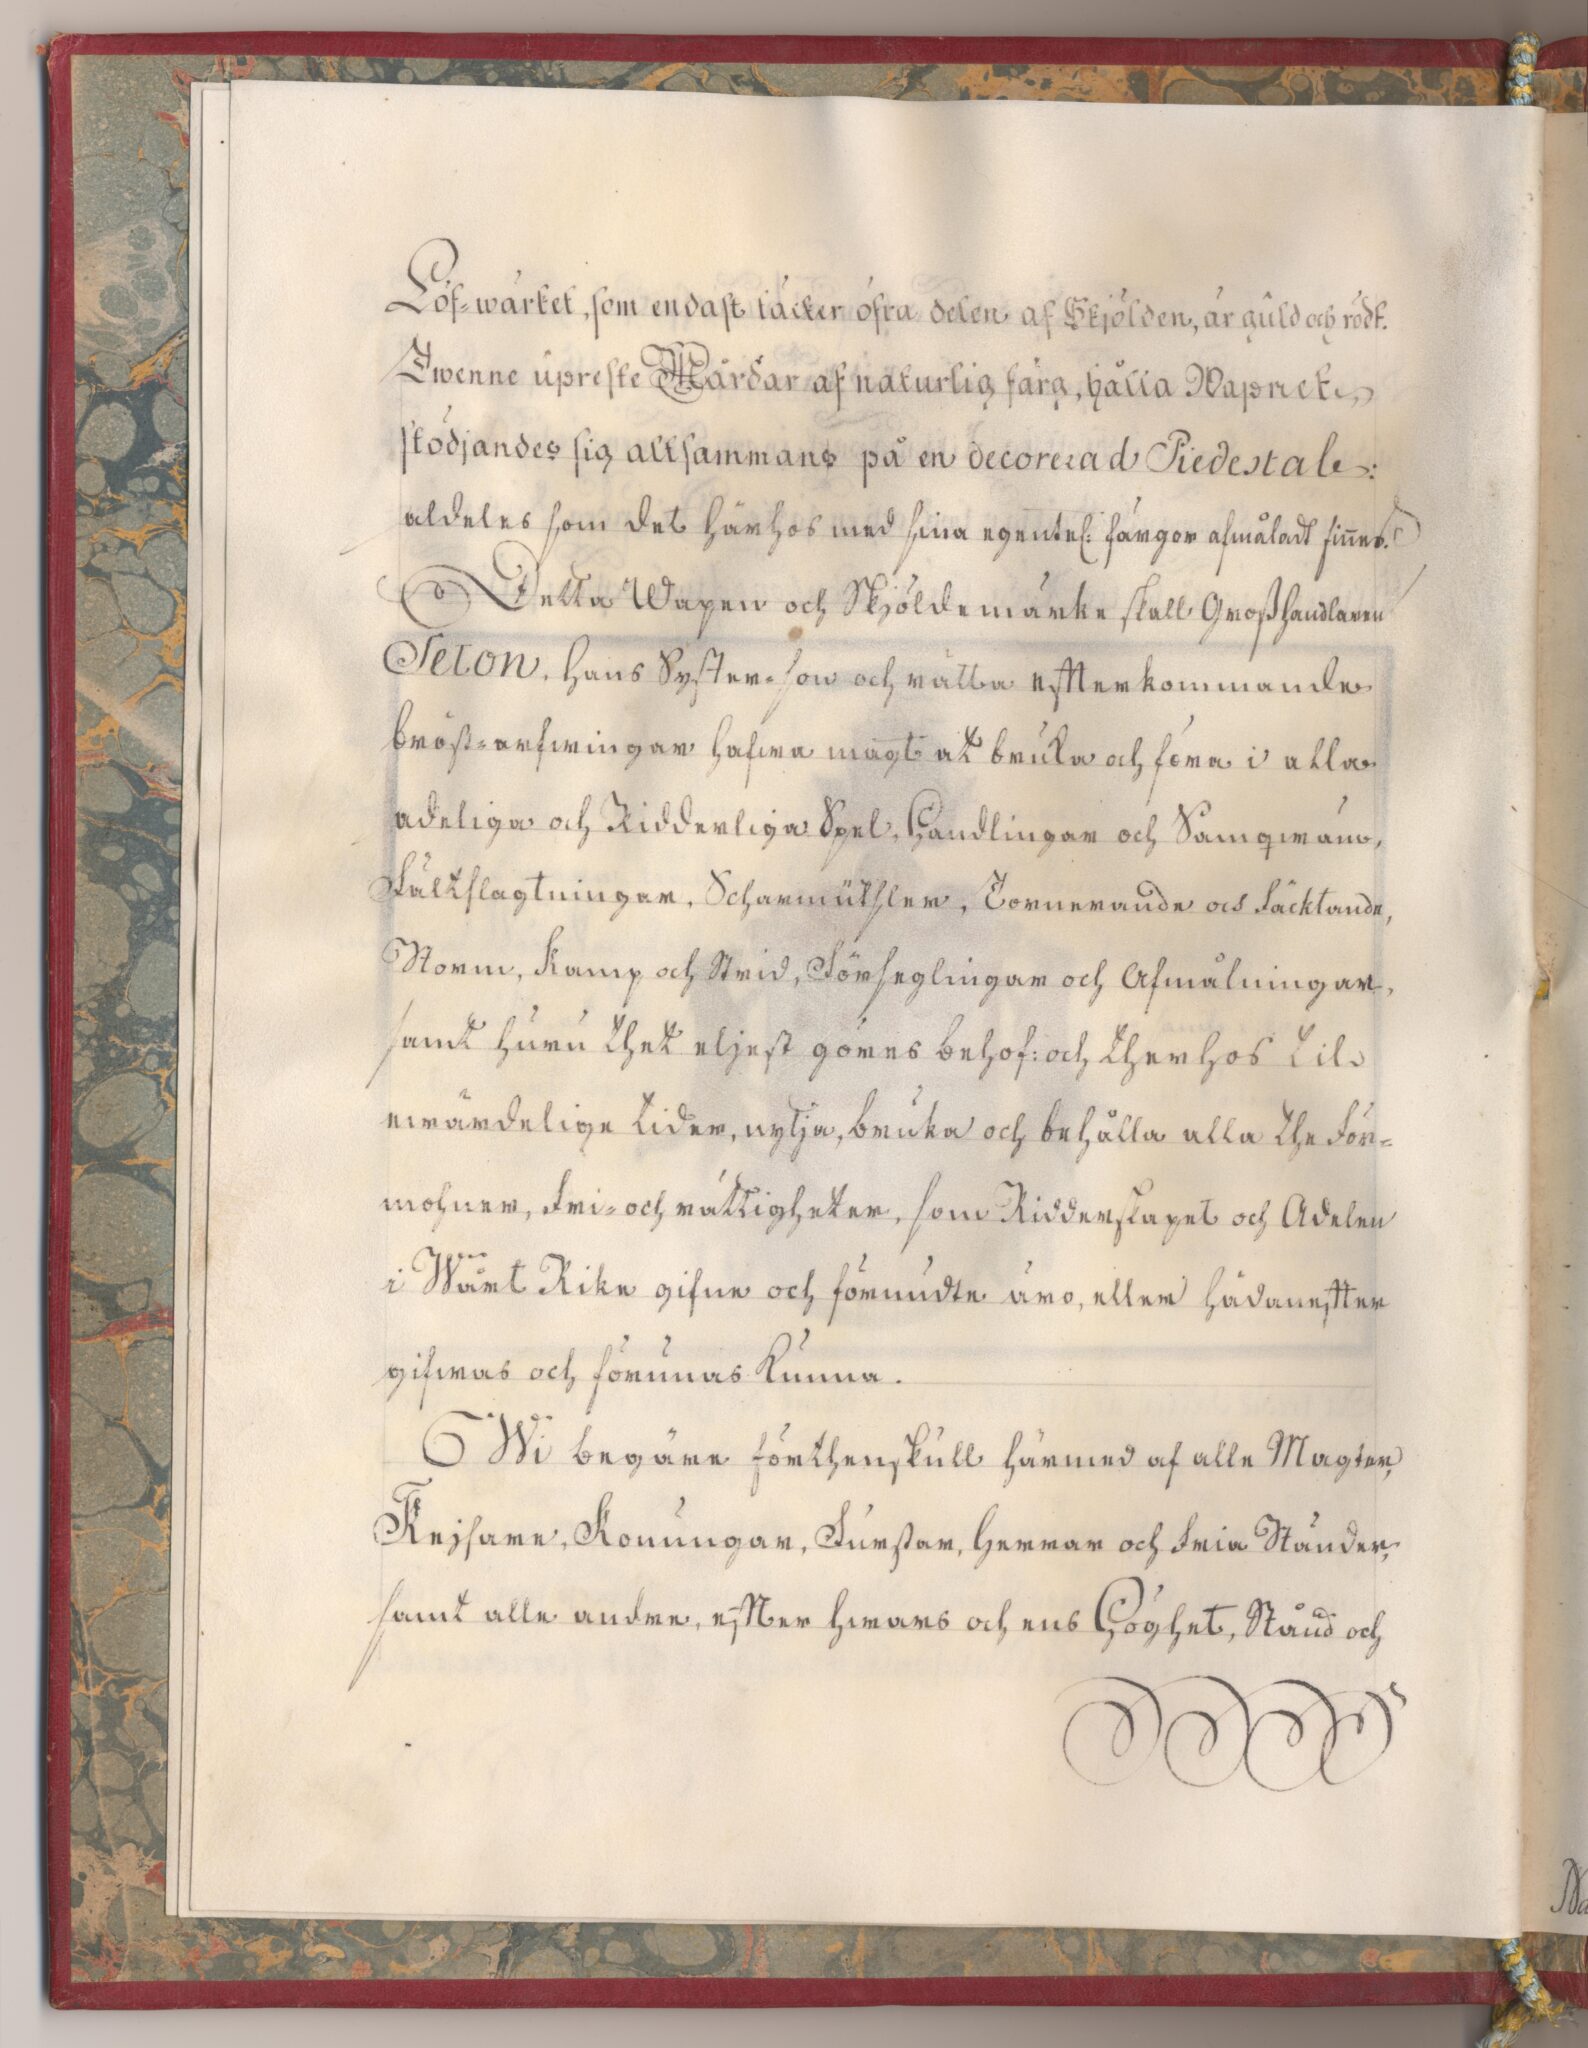 Löf-wärket, som endast täcker öfra delen af Skjölden, är guld och rödt.
Twenne upreste Mårdar af naturlig färg, hålla Wapnet,
stödjandes sig allsammans på en decorerad Piedestale:
aldeles som det härhos med sina egentel: färgor afmåladt finnes.
Detta Wapen och Skjöldemärke skall Grosshandlaren
Seton, hans Syster-son och rätta efterkommande
bröst-arfwingar hafwa magt at bruka och föra i alla
adeliga och Ridderliga Spel, Handlingar och Samqwäm,
Fältslagtningar, Scharmütsler, Tornerande och Fäcktande,
Storm, Kamp och Strid, Förseglingar och Afmålningar,
samt huru thet eljest göres behof: och therhos til
ewärdelige tider, nytja, bruka och behålla alla the För-
mohner, Fri- och rättigheter, som Ridderskapet och Adelen
i Wårt Rike gifne och förundte äro, eller hädanefter
gifwas och förunnas kunna.
Wi begäre förthenskull härmed af alle Magter,
Kejsare, Konungar, Furstar, Herrar och Fria Ständer,
samt alle andre, efter hwars och ens Höghet, Stånd och